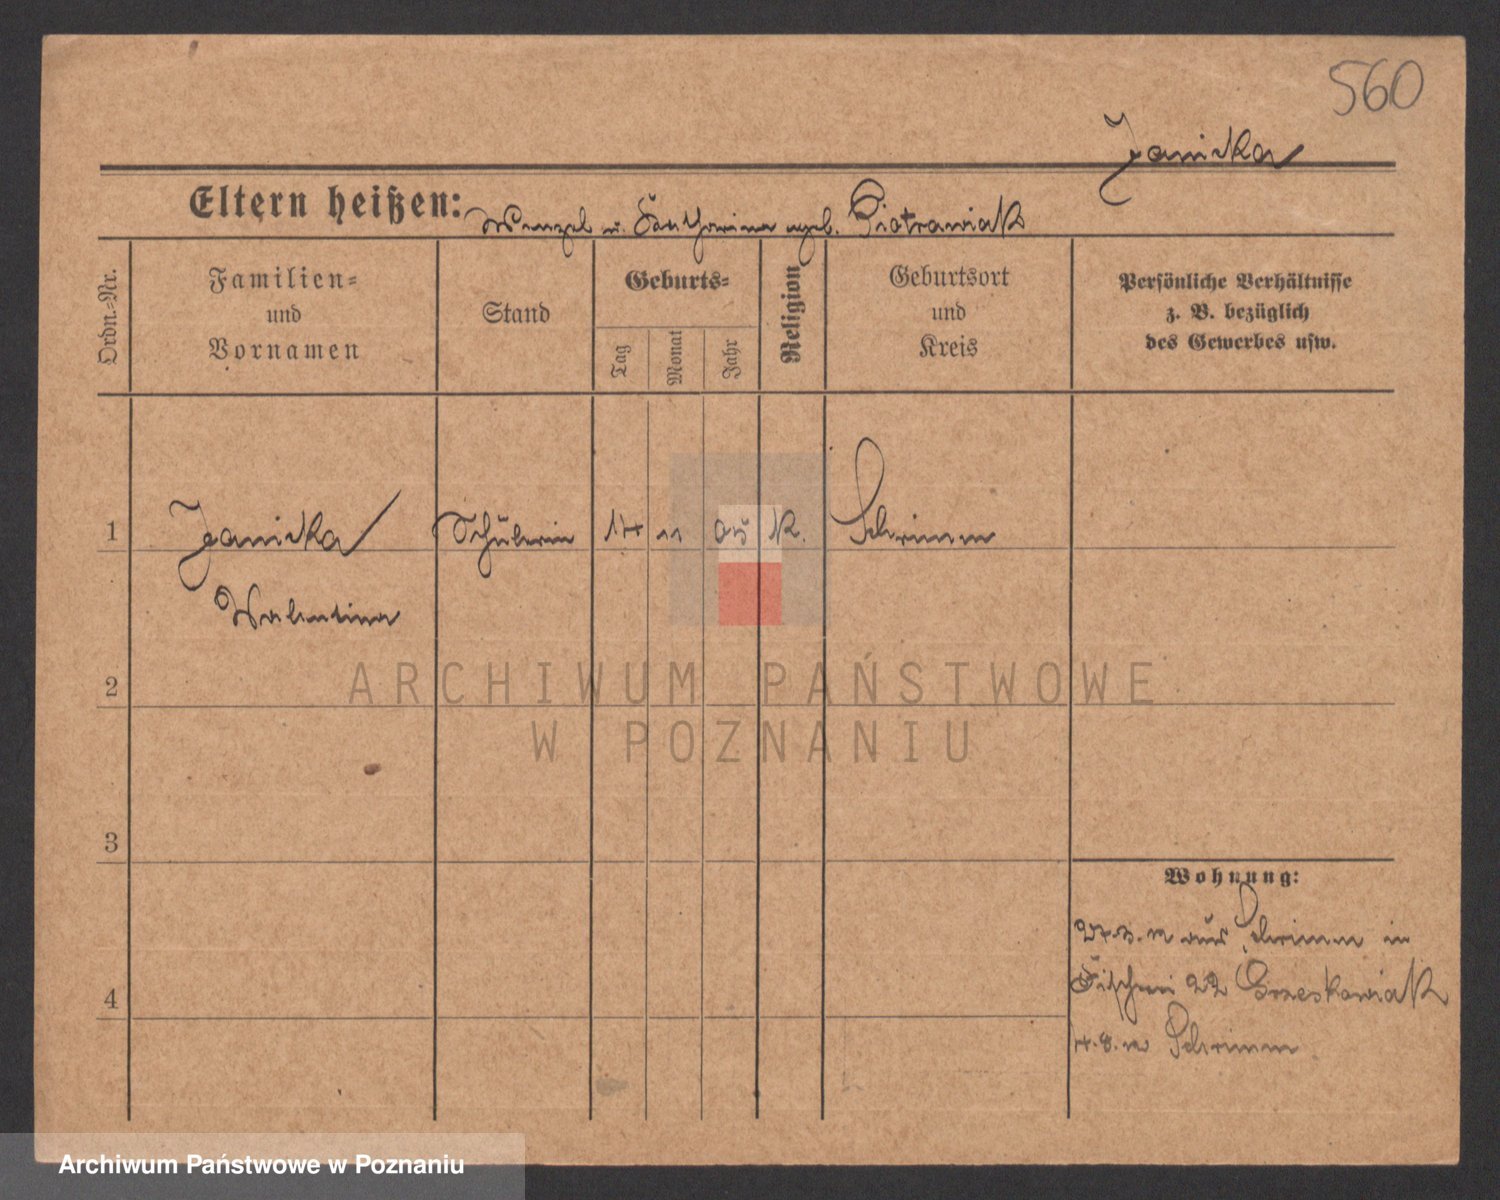 560
Janicka
Eltern heißen: Wenzel u. Katharina geb. Piotrowiak
Ordn.-Nr.
Familien-
und
Vornamen
Stand
Geburts-
Tag
Monat
Jahr
Religion
Geburtsort
und
Kreis
Persönliche Verhältnisse
z. B. bezüglich
des Gewerbes usw.
1 Janicka Schülerin 14 11 05 K. Schrimm
Valentina
2
3
4
Wohnung:
aus Schrimm in
Fischerei 22 Grzeskowiak
4.8. Schrimm
ARCHIWUM PAŃSTWOWE
W POZNANIU
Archiwum Państwowe w Poznaniu